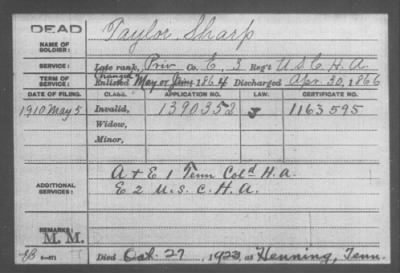 DEAD
Taylor Sharp
NAME OF
SOLDIER:
SERVICE: Late rank, Priv Co. E, 3 Reg't U.S.C.H.A.
TERM OF
SERVICE: Enlisted May or June 1864 Discharged Apr. 30, 1866
DATE OF FILING. CLASS. APPLICATION NO. LAW. CERTIFICATE NO.
1910 May 5 Invalid, 1390352 J 1163595
Widow,
Minor,
ADDITIONAL
SERVICES:
A & E 1 Tenn Cold H.A.
E 2 U.S.C.H.A.
REMARKS:
M. M.
Died Oct. 27, 1923, at Henning, Tenn.